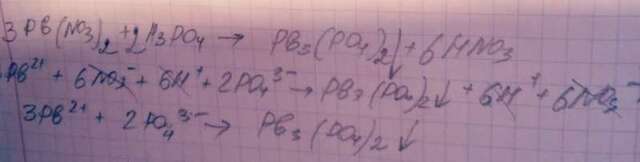 3PB(NO3)2 + 2H3PO4 → PB3(PO4)2↓ + 6HNO3
PB²⁺ + 6NO3⁻ + 6H⁺ + 2PO4³⁻ → PB3(PO4)2↓ + 6H⁺ + 6NO3⁻
3PB²⁺ + 2PO4³⁻ → PB3(PO4)2↓